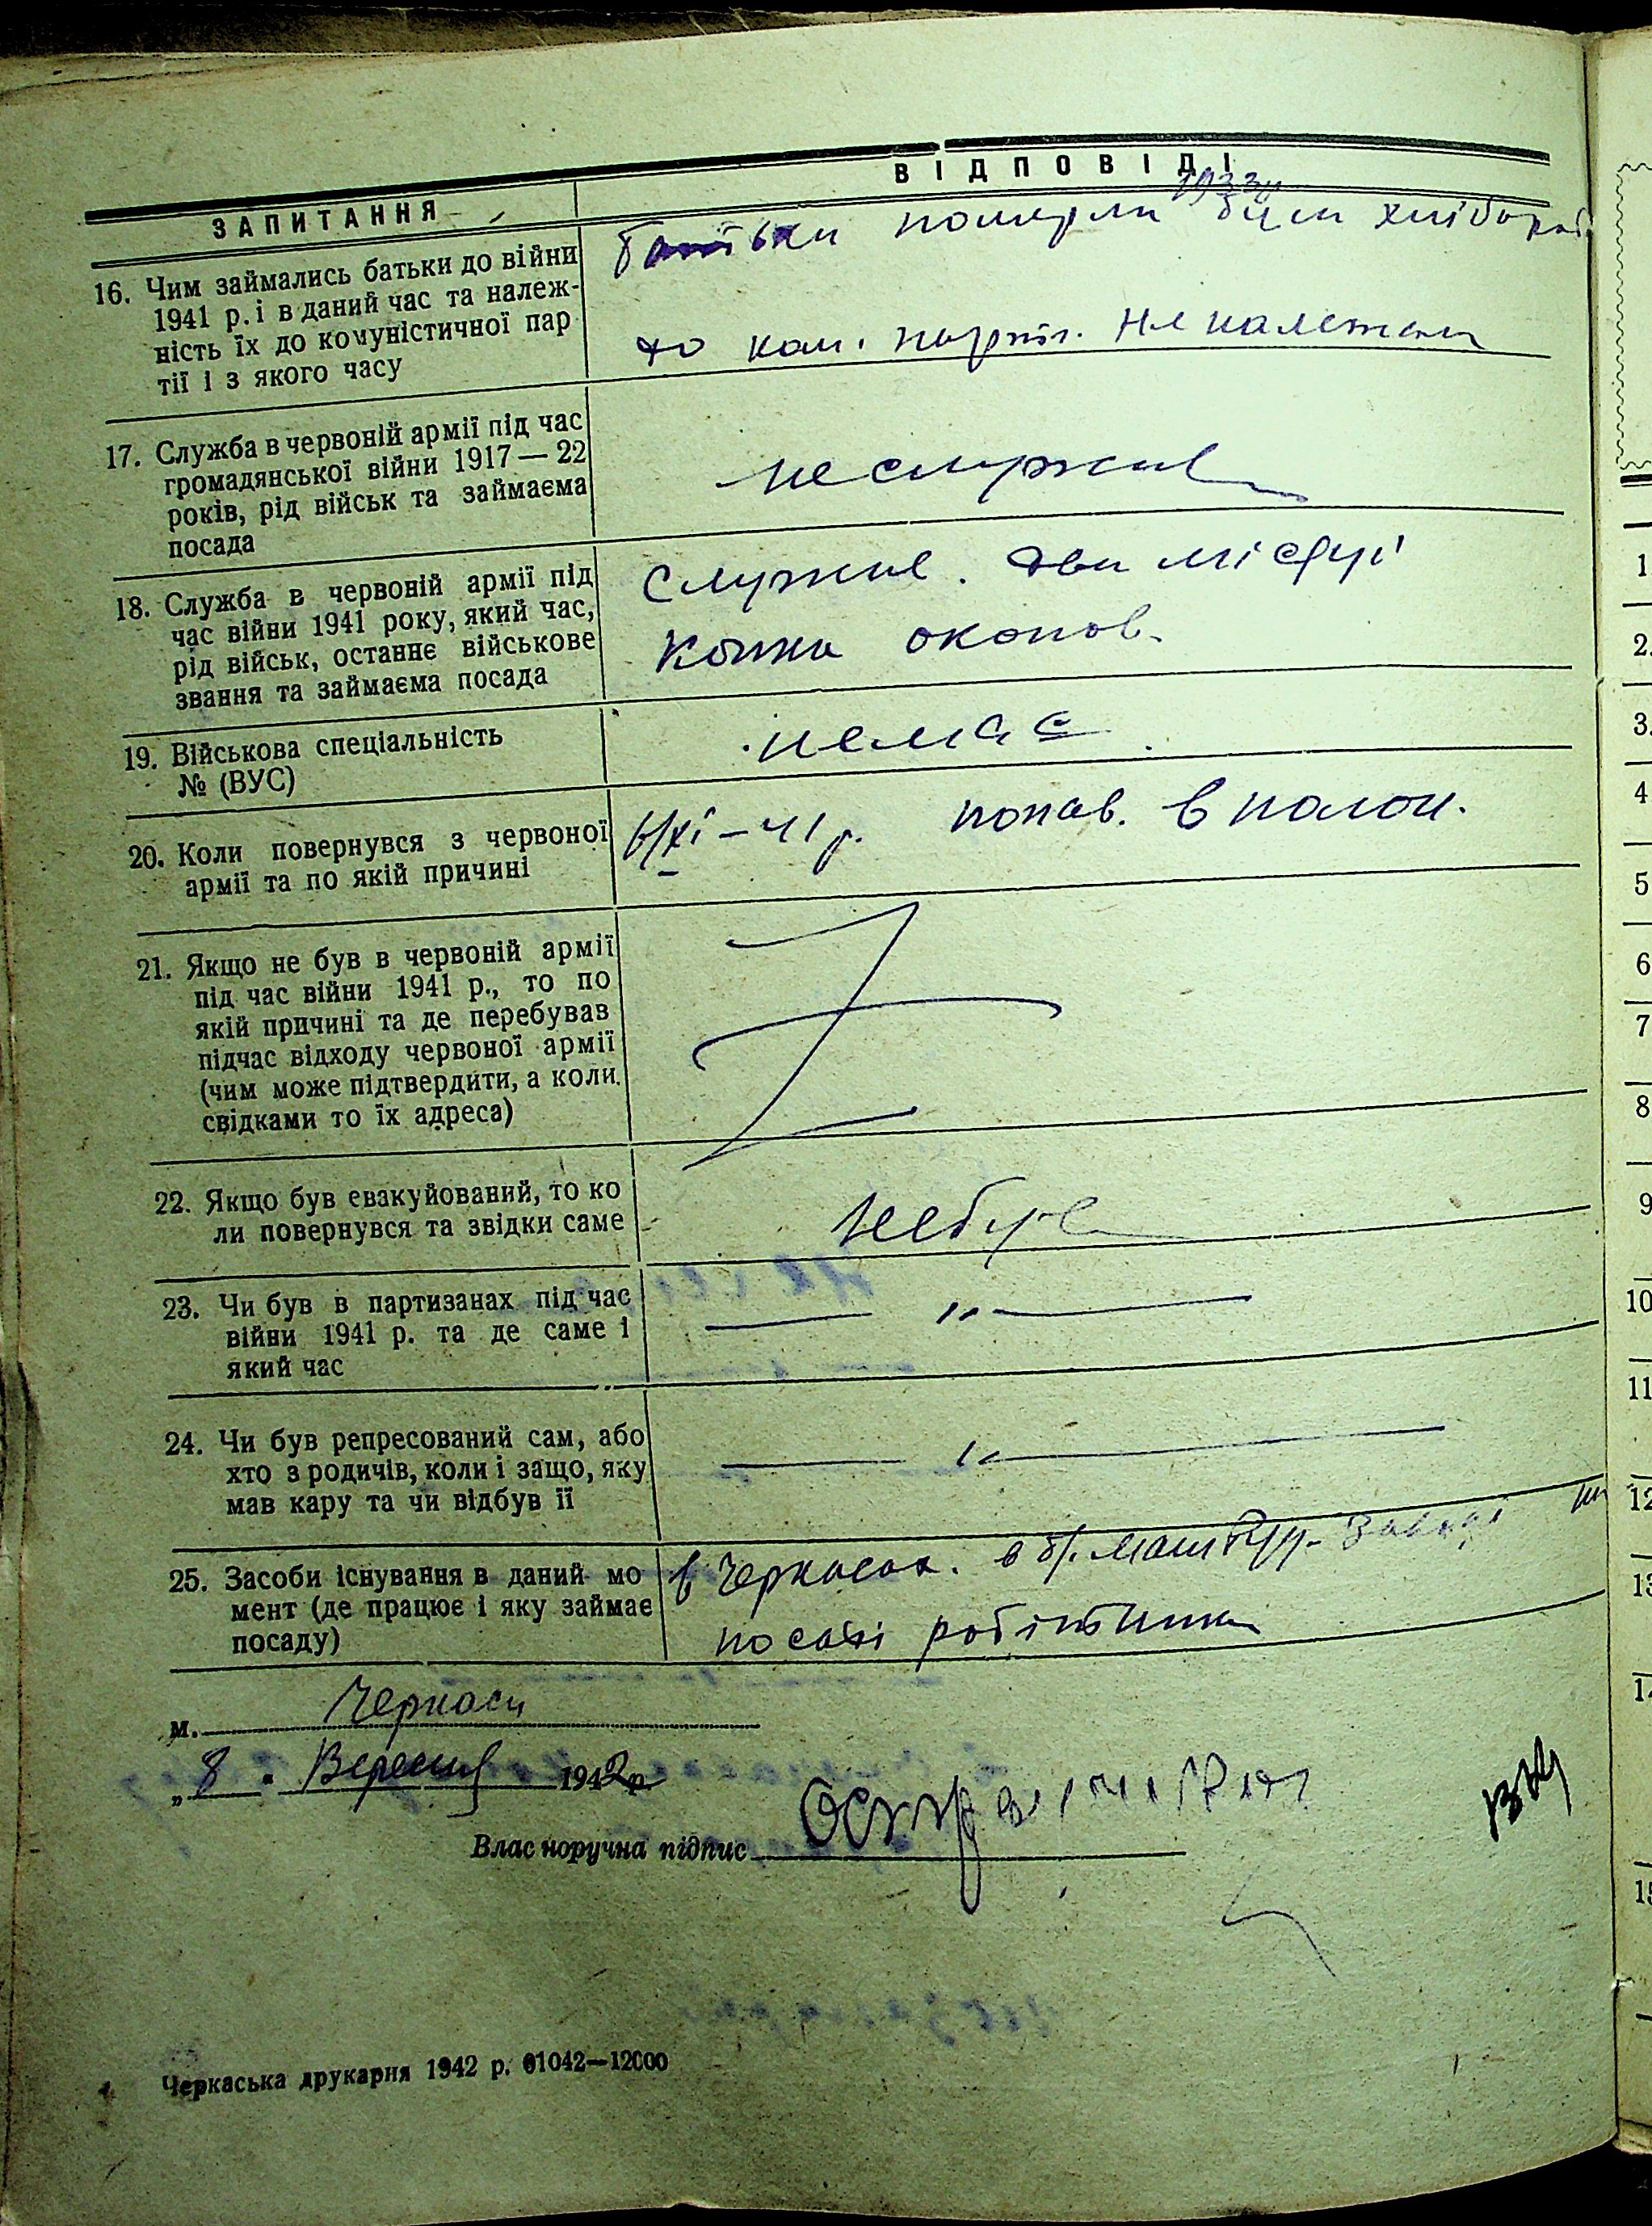 ЗАПИТАННЯ
ВІДПОВІДІ
16. Чим займались батьки до війни
1941 р. і в даний час та належ-
ність їх до комуністичної пар
тії і з якого часу
1933р
батьки померли були хлібороб.
до ком. партії. не належали
17. Служба в червоній армії під час
громадянської війни 1917 — 22
років, рід військ та займаєма
посада
не служив
18. Служба в червоній армії під
час війни 1941 року, який час,
рід військ, останнє військове
звання та займаєма посада
Служив. два місяці
Копка окопов.
19. Військова спеціальність
№ (ВУС)
немає
20. Коли повернувся з червоної
армії та по якій причині
XI – 41 р. попав. в полон.
21. Якщо не був в червоній армії
під час війни 1941 р., то по
якій причині та де перебував
підчас відходу червоної армії
(чим може підтвердити, а коли
свідками то їх адреса)
22. Якщо був евакуйований, то ко
ли повернувся та звідки саме
не був
23. Чи був в партизанах під час
війни 1941 р. та де саме і
який час
— " —
24. Чи був репресований сам, або
хто з родичів, коли і защо, яку
мав кару та чи відбув її
— " —
25. Засоби існування в даний мо
мент (де працює і яку займає
посаду)
в Черкасах. в маш буд. заводі на
посаді робітника
м. Черкаси
„ 8 " Вересня 1942 р
Власноручна підпис
Черкаська друкарня 1942 р. 01042—12000
1
2.
3.
4
5
6
7
8
9
10
11
12
13
14
15